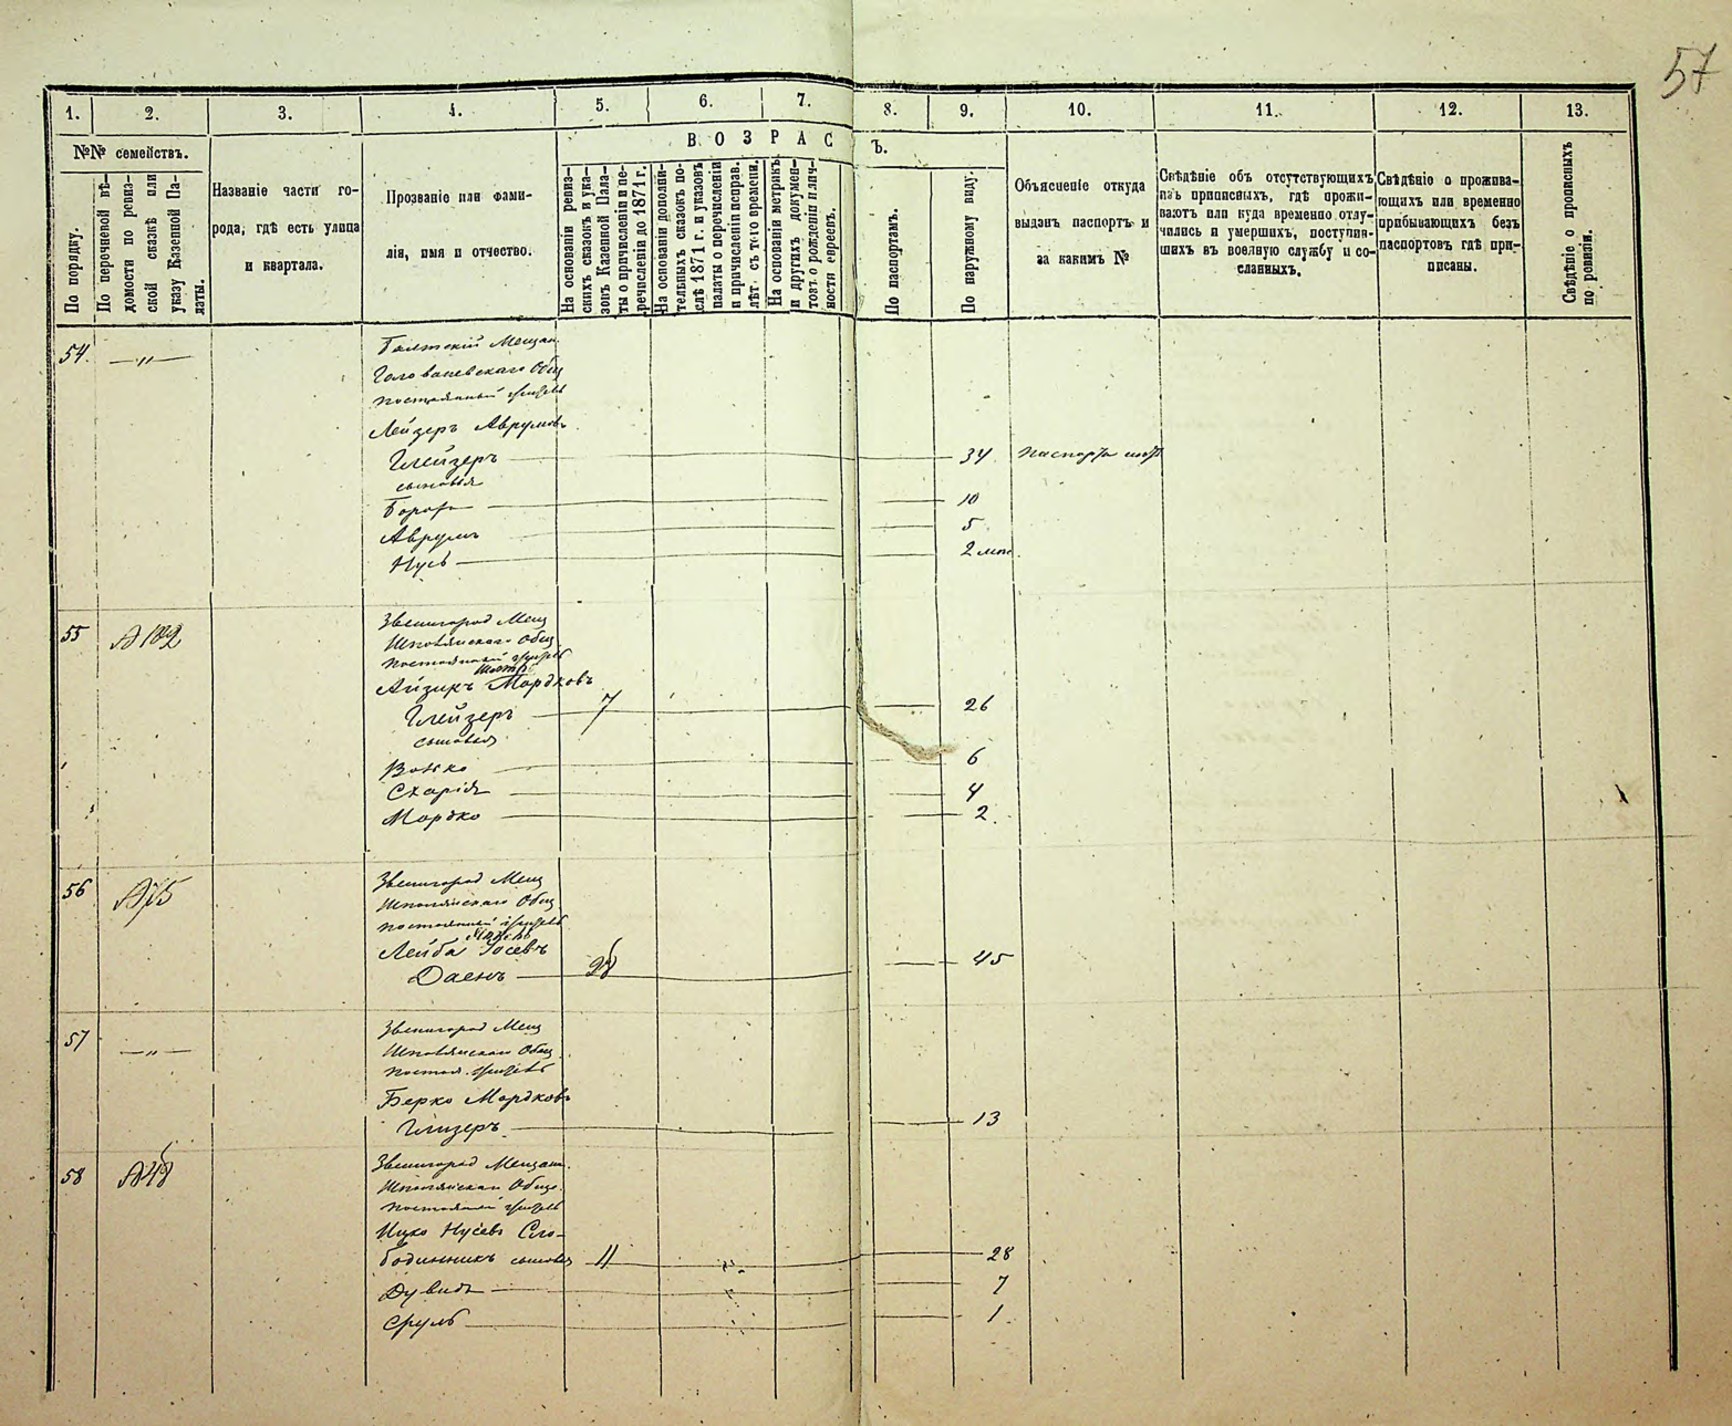 57
1. 2. 3. 4. 5. 6. 7. 8. 9. 10. 11. 12. 13.
№№ семействъ.
По порядку.
По перечневой вѣ-
домости по ревиз-
ской сказкѣ или
указу Казенной Па-
латы.
Названіе части го-
рода, гдѣ есть улица
и квартала.
Прозваніе или фами-
лія, имя и отчество.
ВОЗРАС Ъ.
На основаніи ревиз-
скихъ сказокъ и ука-
зовъ Казенной Пала-
ты о причисленіи и пе-
речисленіи до 1871 г.
На основаніи дополни-
тельныхъ сказокъ по-
слѣ 1871 г. и указовъ
палаты о перечисленіи
и причисленіи неправ.
лѣт. съ того времени.
На основаніи метрикъ
и другихъ докумен-
товъ о рожденіи и лич-
ности евреевъ.
По паспортамъ.
По наружному виду.
Объясненіе откуда
выданъ паспортъ и
за какимъ №
Свѣдѣніе объ отсутствующихъ
изъ приписныхъ, гдѣ прожи-
ваютъ или куда временно отлу-
чились и умершихъ, поступив-
шихъ въ военную службу и со-
сланныхъ.
Свѣдѣніе о прожива-
ющихъ или временно
прибывающихъ безъ
паспортовъ гдѣ при-
писаны.
Свѣдѣніе о прописныхъ
по ревизіи.
54. —„— Балтскій Мещан.
Головоневскаго Общ
постоянный
Лейзеръ Аврумовъ
Глейзеръ 34 паспорта
сыновья
10
Аврумъ 5
Нусь 2
55 №182 Звенигород Мещ
Шполянскаго Общ
постоянный
Айзикъ Мордковъ
Глейзеръ 7 26
сыновья
6
Схарія 4
Мордко 2.
56 №75 Звенигород Мещ
Шполянскаго Общ.
постоянный
Лейба Іосевъ
Даенъ 28 45
57 —„— Звенигород Мещ
Шполянскаго Общ.
постоя.
Берко Мордковъ
Глизеръ 13
58 №48 Звенигород Мещан.
Шполянскаго Обще.
Ицко Нусевъ Сло-
бодянникъ сыновья 11 „ 28
Дувидъ „ 7
Сруль „ 1.